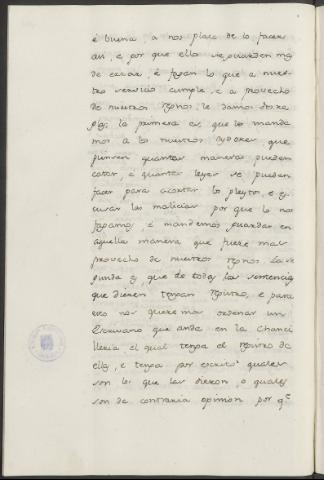 é buena, a nos place de lo facer
asi, e por que ello se guarden mejor
de errar, é fagan lo que a nues-
tro servicio cumple, e a provecho
de nuestros regnos, le damos dos re
glas: la primera es, que lo manda
mos a los nuestros oydores, que
piensen quantas maneras pueden
catar, é quantas leyes se pueden
facer para acortar los pleytos e es-
cusar las malicias por que lo no
fagamos, é mandemos guardar en
aquella manera que fuere mas
provecho de nuestros regnos. La se
gunda es que de todas las sentencias
que dieren tengan registro, e para
eso nos queremos ordenar un
Escrivano que ande en la Chanci
lleria el qual tenga el registro de
ellas, e tenga por escrito quales
son los que las dieron, o quales
son de contraria opinion por qe